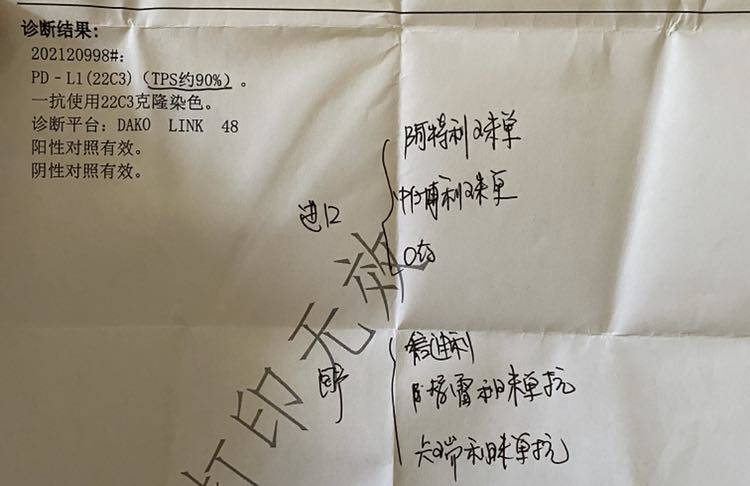 诊断结果:
202120998#:
PD-L1(22C3)(TPS约90%)。
一抗使用22C3克隆染色。
诊断平台: DAKO LINK 48
阳性对照有效。
阴性对照有效。
进口
阿特利珠单
帕博利珠单
O药
国产
信迪利
卡瑞利珠单抗
打印无效